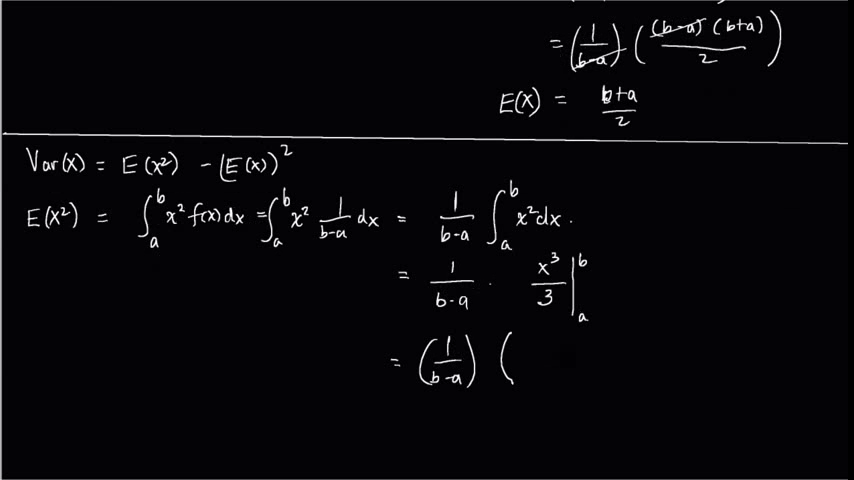 = (1/(b-a)) ((b-a)(b+a)/2)
E(X) = (b+a)/2
Var(X) = E(X²) - (E(X))²
E(X²) = ∫ₐᵇ x² f(x) dx = ∫ₐᵇ x² 1/(b-a) dx = 1/(b-a) ∫ₐᵇ x² dx.
= 1/(b-a) · x³/3 |ₐᵇ
= (1/(b-a)) (